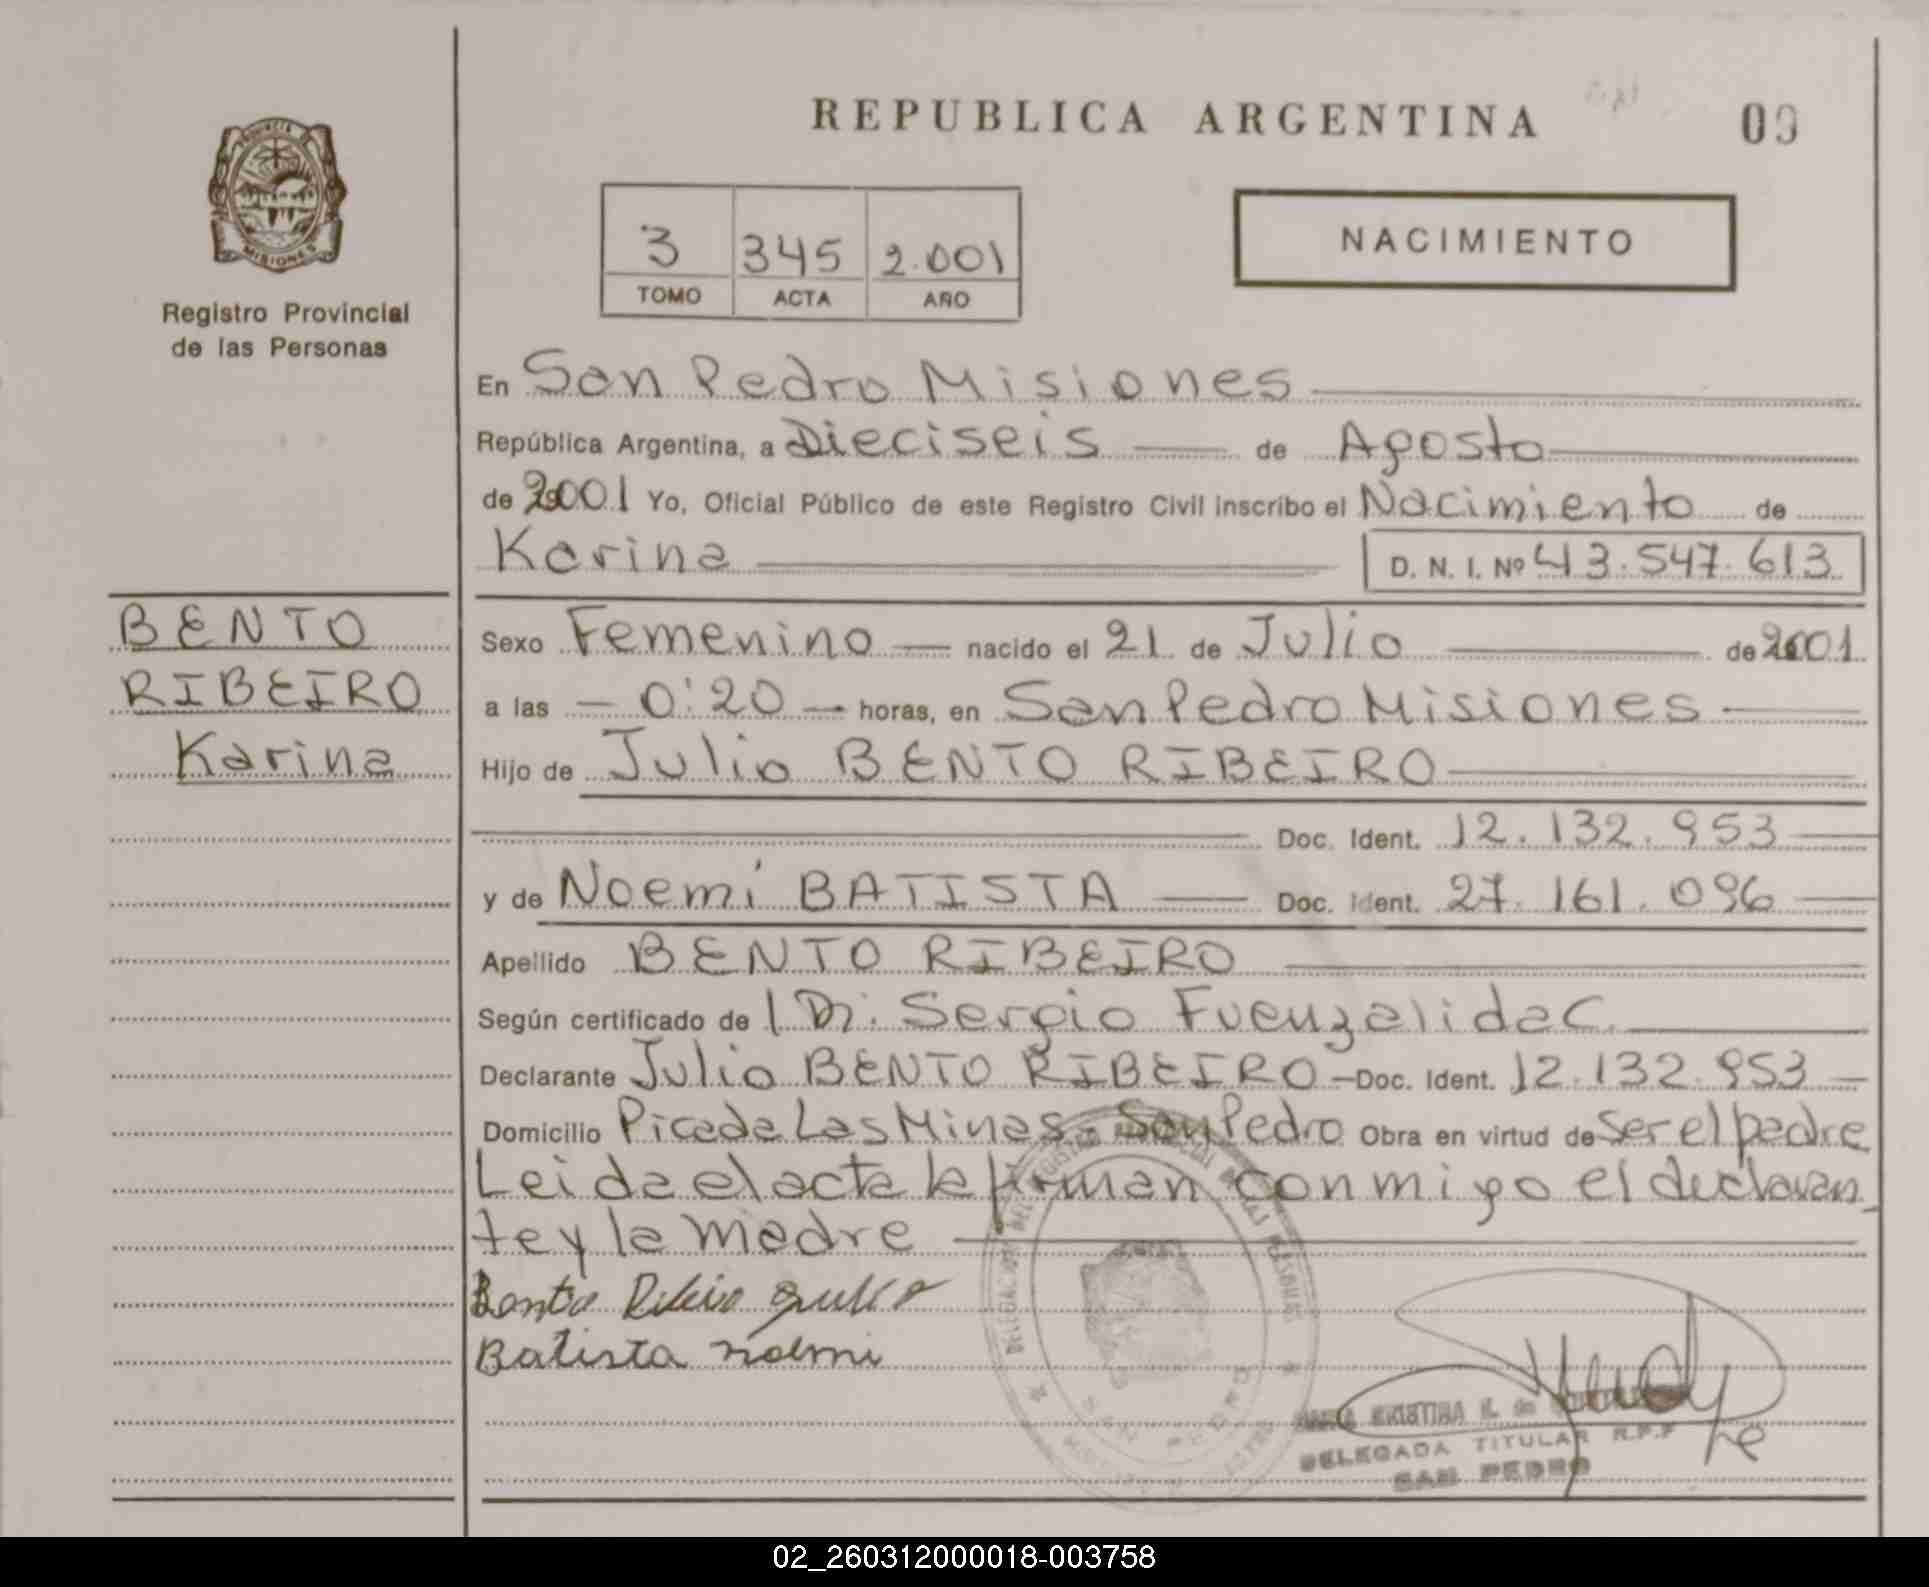 REPUBLICA ARGENTINA
09
PROVINCIA DE
MISIONES
Registro Provincial
de las Personas
3 345 2.001
TOMO ACTA AÑO
NACIMIENTO
En San Pedro Misiones
República Argentina, a Dieciseis de Agosto
de 2001 Yo, Oficial Público de este Registro Civil inscribo el Nacimiento de
Karina D. N. I. Nº 43.547.613
BENTO
RIBEIRO
Karina
Sexo Femenino nacido el 21 de Julio de 2001
a las 0:20 horas, en San Pedro Misiones
Hijo de Julio BENTO RIBEIRO
Doc. Ident. 12.132.953
y de Noemí BATISTA Doc. Ident. 27.161.096
Apellido BENTO RIBEIRO
Según certificado de Dr. Sergio Fuenzalida C.
Declarante Julio BENTO RIBEIRO Doc. Ident. 12.132.953
Domicilio Picada Las Minas - San Pedro Obra en virtud de ser el padre
Leida el acta la firman conmigo el declaran
te y la madre
Bento Ribeiro Julio
Batista noemi
CRISTINA
DELEGADA TITULAR R.P.P
SAN PEDRO
02_260312000018-003758